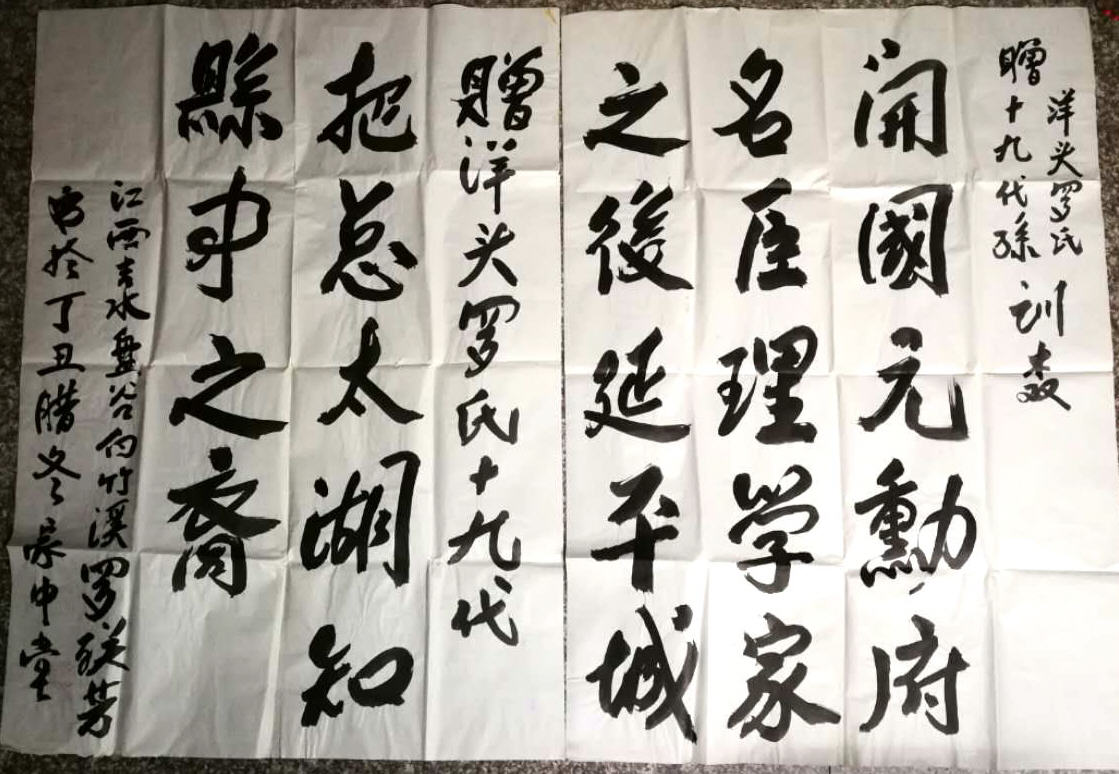 洋头罗氏
贈十九代孫訓森
開國元勳府
名臣理学家
之後延平城
贈洋头罗氏十九代
把总太湖知
縣事之裔
江西吉水盘谷竹溪罗联芳
書於丁丑腊冬家中堂